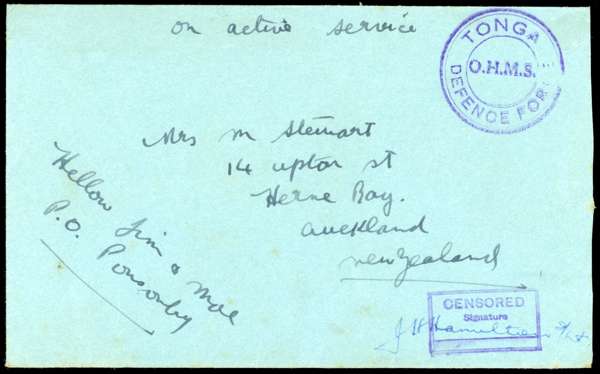 on active service
TONGA
O.H.M.S.
DEFENCE FORCE
Mrs M Stewart
14 upton st
Herne Bay.
auckland
new Zealand
Hellow Jim & Moe
P.O. Ponsonby
CENSORED
Signature
J H Hamilton